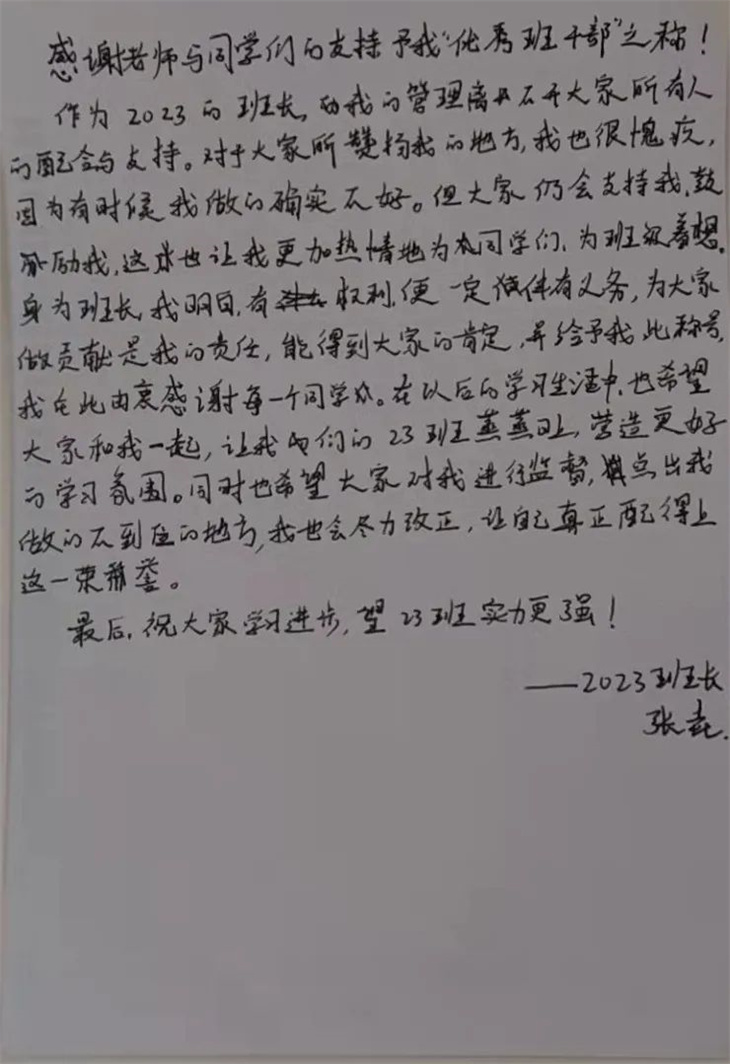 感谢老师与同学们的支持予我“优秀班干部”之称！
作为2023的班长，我的管理离不开大家所有人
的配合与支持。对于大家所赞扬我的地方，我也很愧疚，
因为有时候我做的确实不好。但大家仍会支持我、鼓
励我，这也让我更加热情地为同学们、为班级着想。
身为班长，我明白，有权利，便一定伴有义务，为大家
做贡献是我的责任，能得到大家的肯定，并给予我此称号，
我在此由衷感谢每一个同学。在以后的学习生活中，也希望
大家和我一起，让我们的23班蒸蒸日上，营造更好
的学习氛围。同时也希望大家对我进行监督，点出我
做的不到位的地方，我也会尽力改正，让自己真正配得上
这一荣誉。
最后，祝大家学习进步，望23班实力更强！
——2023班长
张